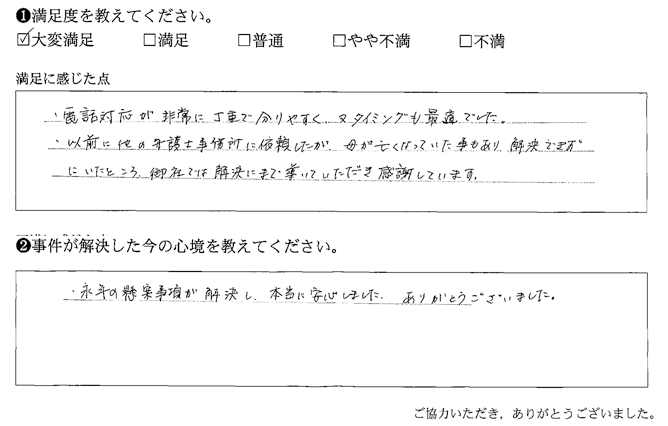 ❶満足度を教えてください。
☑大変満足 □満足 □普通 □やや不満 □不満
満足に感じた点
・電話対応が非常に丁重で分りやすく、又タイミングも最適でした。
・以前に他の弁護士事務所に依頼したが、母が亡くなっていた事もあり、解決できず
にいたところ、御社では解決にまで導いていただき感謝しています。
❷事件が解決した今の心境を教えてください。
・永年の懸案事項が解決し、本当に安心しました。ありがとうございました。
ご協力いただき、ありがとうございました。